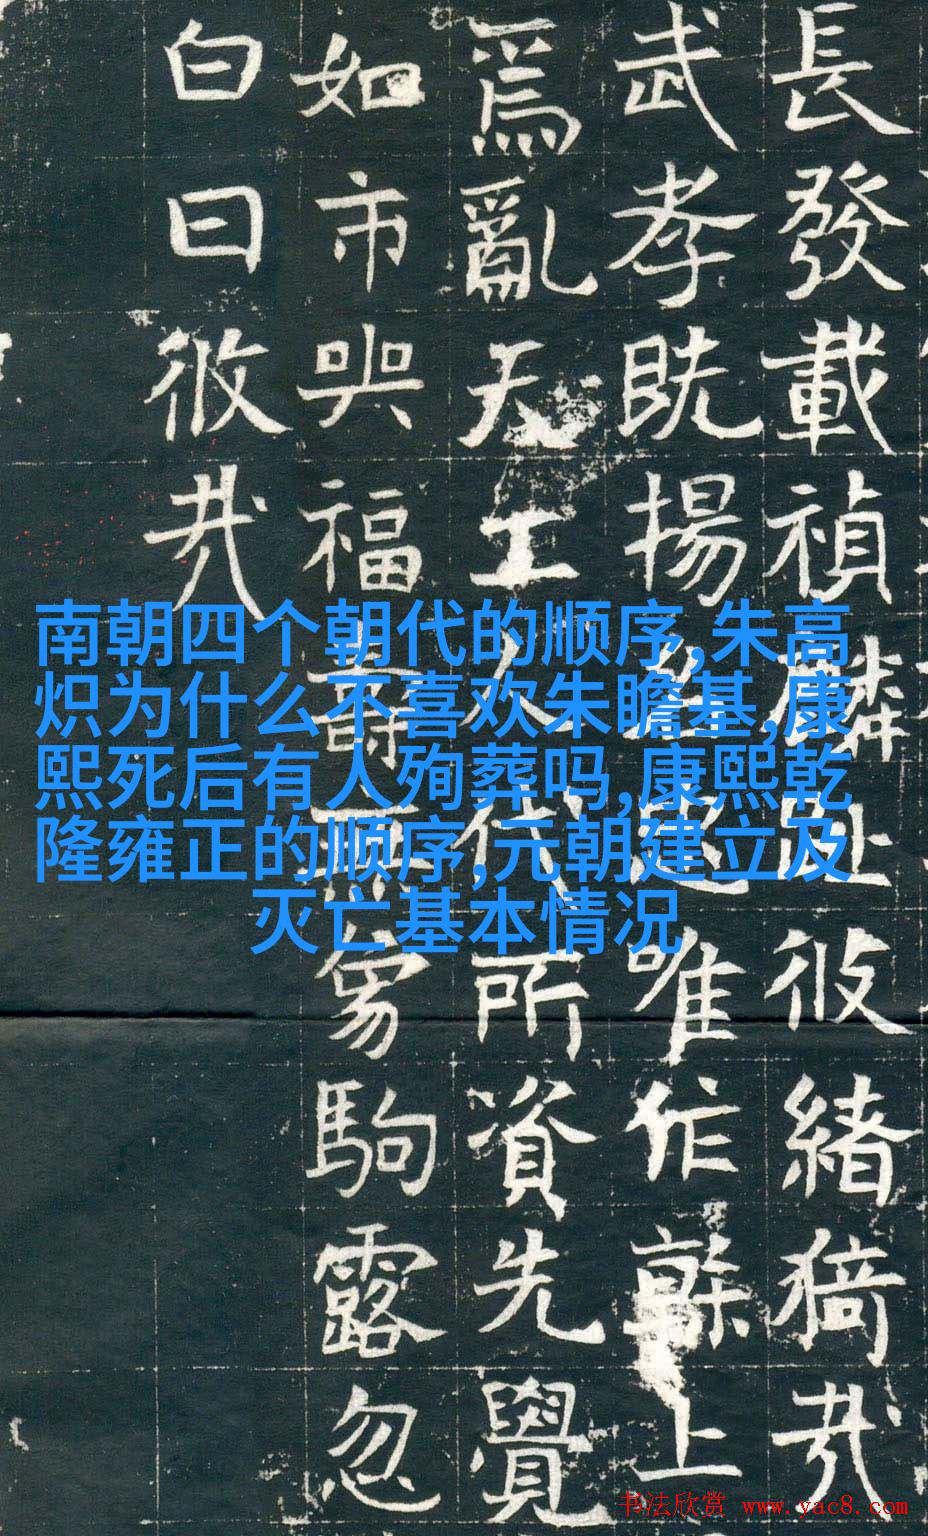 長發載禎麟趾彼緒猗哉
武孝既揚起唯作上
爲亂天工人代所資先覺
如市與福壽無象駒露忽
白日攸哉
南朝四个朝代的顺序,朱高
炽为什么不喜欢朱瞻基,康
熙死后有人殉葬吗,康熙乾
隆雍正的顺序,元朝建立及
灭亡基本情况
书法欣赏 www.yac8.com